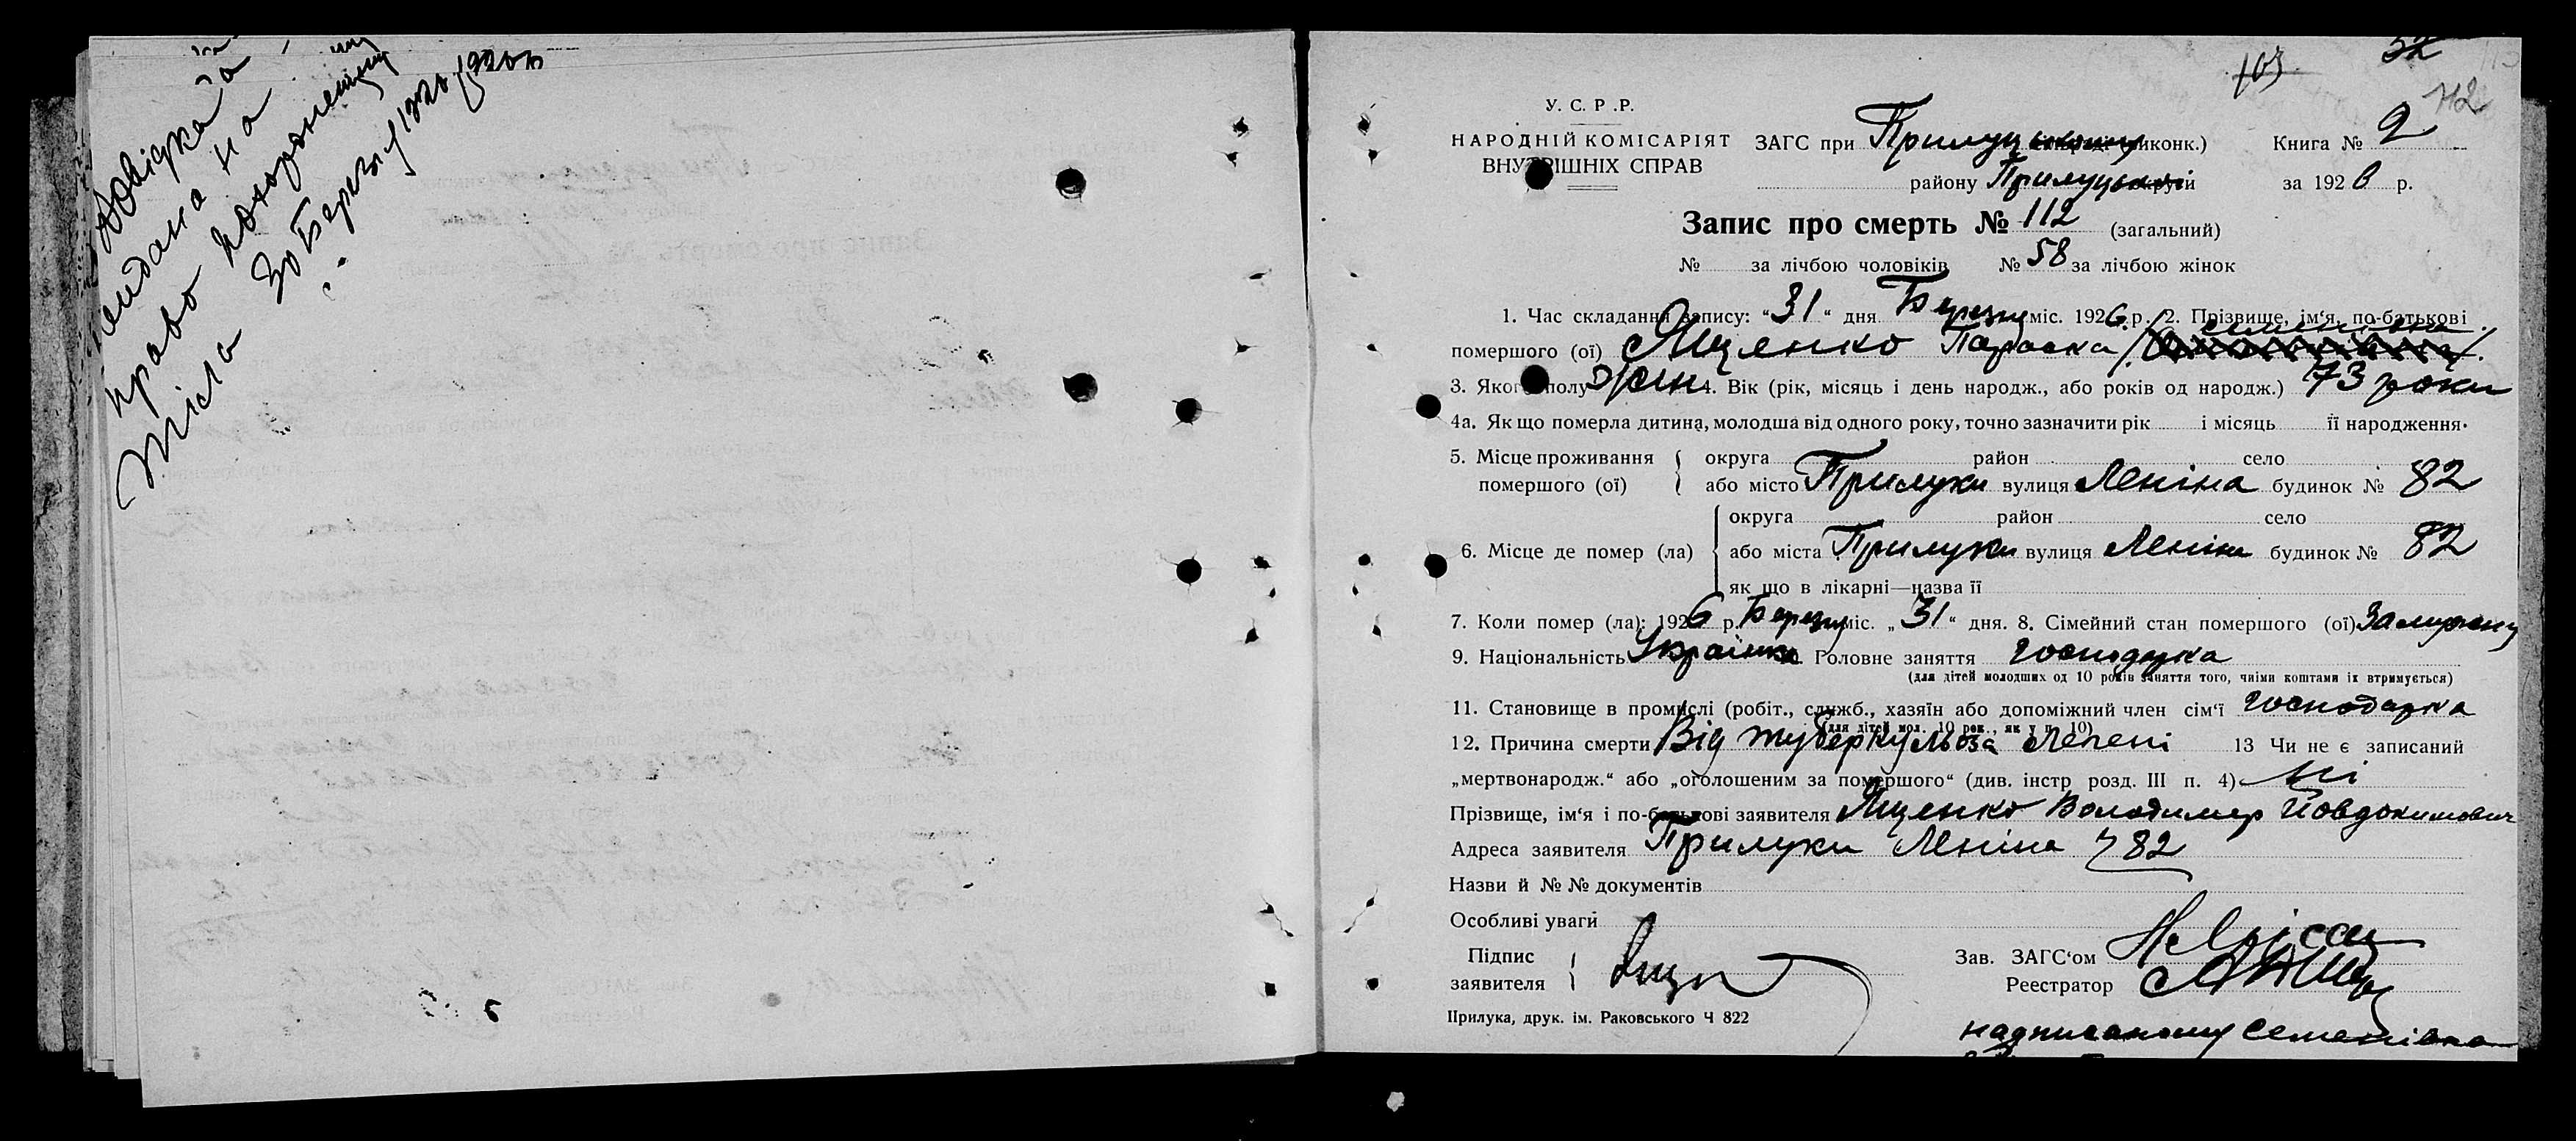 Довідка
видана на
право похоронення
тіла 30 Березня 1926 р
103
52
112
У. С. Р. Р.
НАРОДНІЙ КОМІСАРІЯТ
ВНУТРІШНІХ СПРАВ
ЗАГС при Прилуцькому виконк.)
району Прилуцької округи
Книга № 2
за 1926 р.
Запис про смерть № 112 (загальний)
№ за лічбою чоловіків № 58 за лічбою жінок
1. Час складання запису: "31" дня Березня міс. 1926 р. 2. Прізвище, ім'я, по-батькові
Семенівна
помершого (ої) Яценко Параска
3. Якого полу жін 4. Вік (рік, місяць і день народж., або років од народж.) 73 роки
4а. Як що померла дитина, молодша від одного року, точно зазначити рік і місяць її народження.
5. Місце проживання помершого (ої) { округа район село
або місто Прилуки вулиця Леніна будинок № 82
6. Місце де помер (ла) { округа район село
або міста Прилуки вулиця Леніна будинок № 82
як що в лікарні—назва її
7. Коли помер (ла): 1926 р. Березня міс. „31" дня. 8. Сімейний стан помершого (ої) Замужня
9. Національність Українка Головне заняття господарка
(для дітей молодших од 10 років заняття того, чиїми коштами їх втримується)
11. Становище в промислі (робіт., служб., хазяїн або допоміжний член сім'ї господарка
(для дітей мол. 10 рок., як у п. 10)
12. Причина смерти Від туберкульоза Легені 13 Чи не є записаний
„мертвонародж." або „оголошеним за помершого" (див. інстр розд. III п. 4) Ні
Прізвище, ім'я і по-батькові заявителя Яценко Володимер Йовдокимович
Адреса заявителя Прилуки Леніна 82
Назви й № № документів
Особливі уваги
Підпис
заявителя
Зав. ЗАГС'ом
Реестратор
Прилука, друк. ім. Раковського Ч 822
надписаному Семенівна